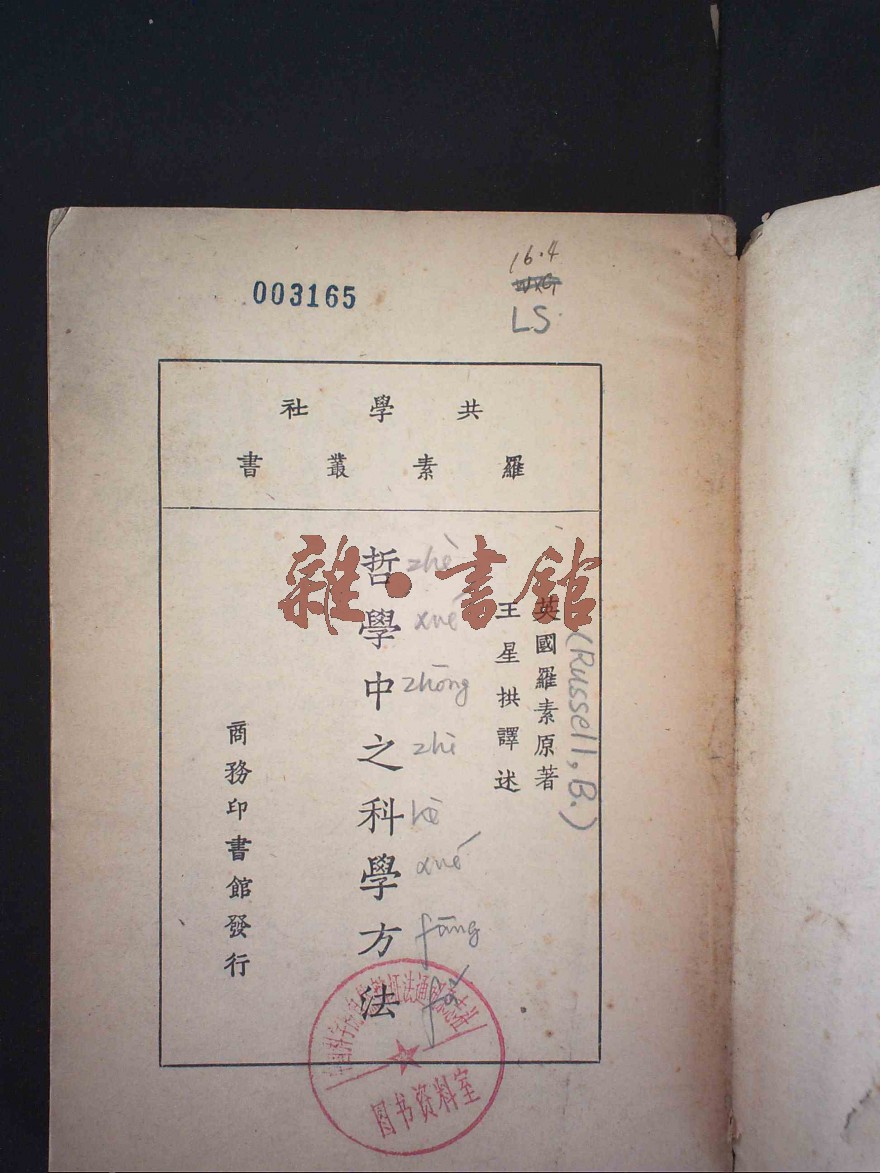 003165
16.4
LS.
共學社
羅素叢書
英國羅素原著
(Russell, B.)
王星拱譯述
哲學中之科學方法
zhé xué zhōng zhī kē xué fāng fǎ
商務印書館發行
雜·書館
图书资料室